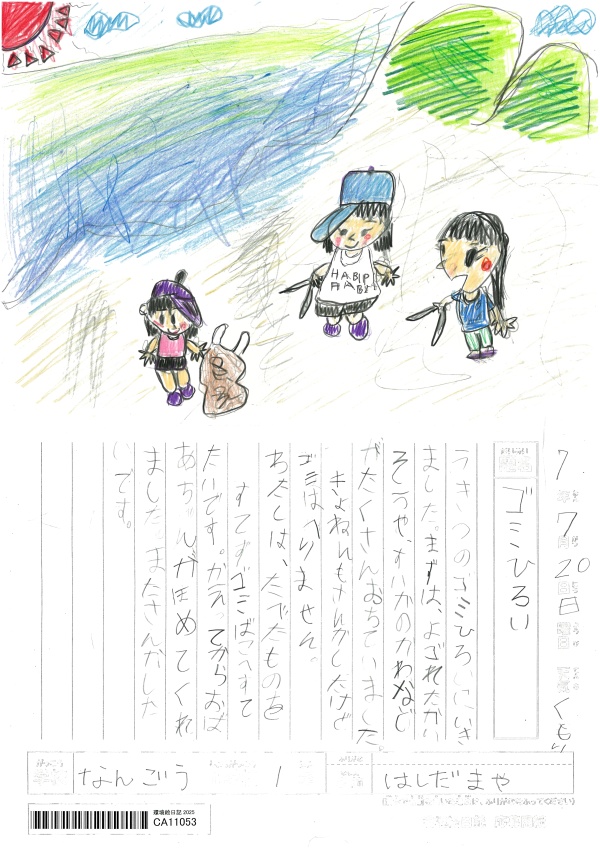 7年7月20日 くもり
ゴミひろい
うきつのゴミひろいにいき
ました。まずは、よごれたかい
そうや、すいかのかわなど
がたくさんおちていました。
きょねんもさんかしたけど
ゴミはへりません。
わたしは、たべたものを
すてずゴミばこへすて
たいです。かえってからおば
あちゃんがほめてくれ
ました。またさんかした
いです。
なんごう
1
はしだまや
HABIP
HABI
ゴミ
環境絵日記 2025
CA11053